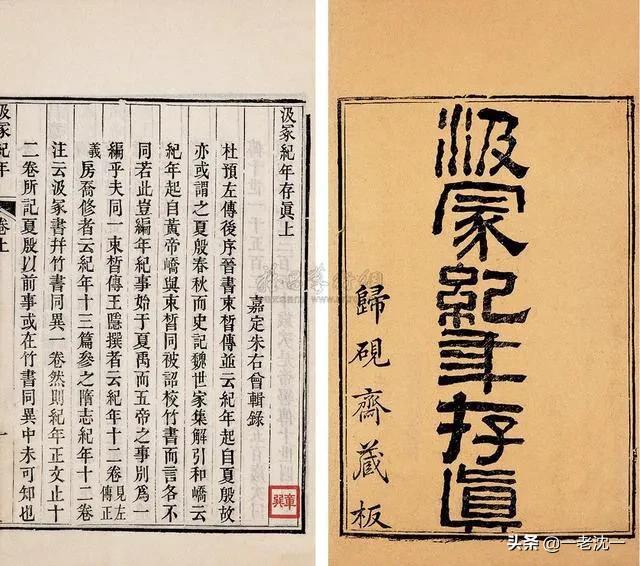 汲冢紀年存眞
歸硯齋藏板
汲冢紀年存眞上
嘉定朱右曾輯錄
杜預左傳後序晉書束皙傳並云紀年起自夏殷故
亦或謂之夏殷春秋而史記魏世家集解引和嶠云
紀年起自黃帝嶠與束皙同被詔校竹書而言各不
同若此豈編年紀事始于夏禹而五帝之事別爲一
編乎夫同一束皙傳王隱撰者云紀年十二卷見左傳正
義房喬修者云紀年十三篇參之隋志紀年十二卷
注云汲冢書幷竹書同異一卷然則紀年正文止十
二卷所記夏殷以前事或在竹書同異中未可知也
汲冢紀年 卷上 一
章巽
头条 @一老沈一